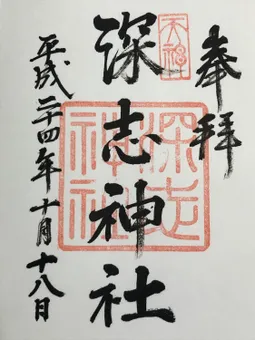 奉拝
天神
深志神社
深志
神社
平成二十四年十月十八日